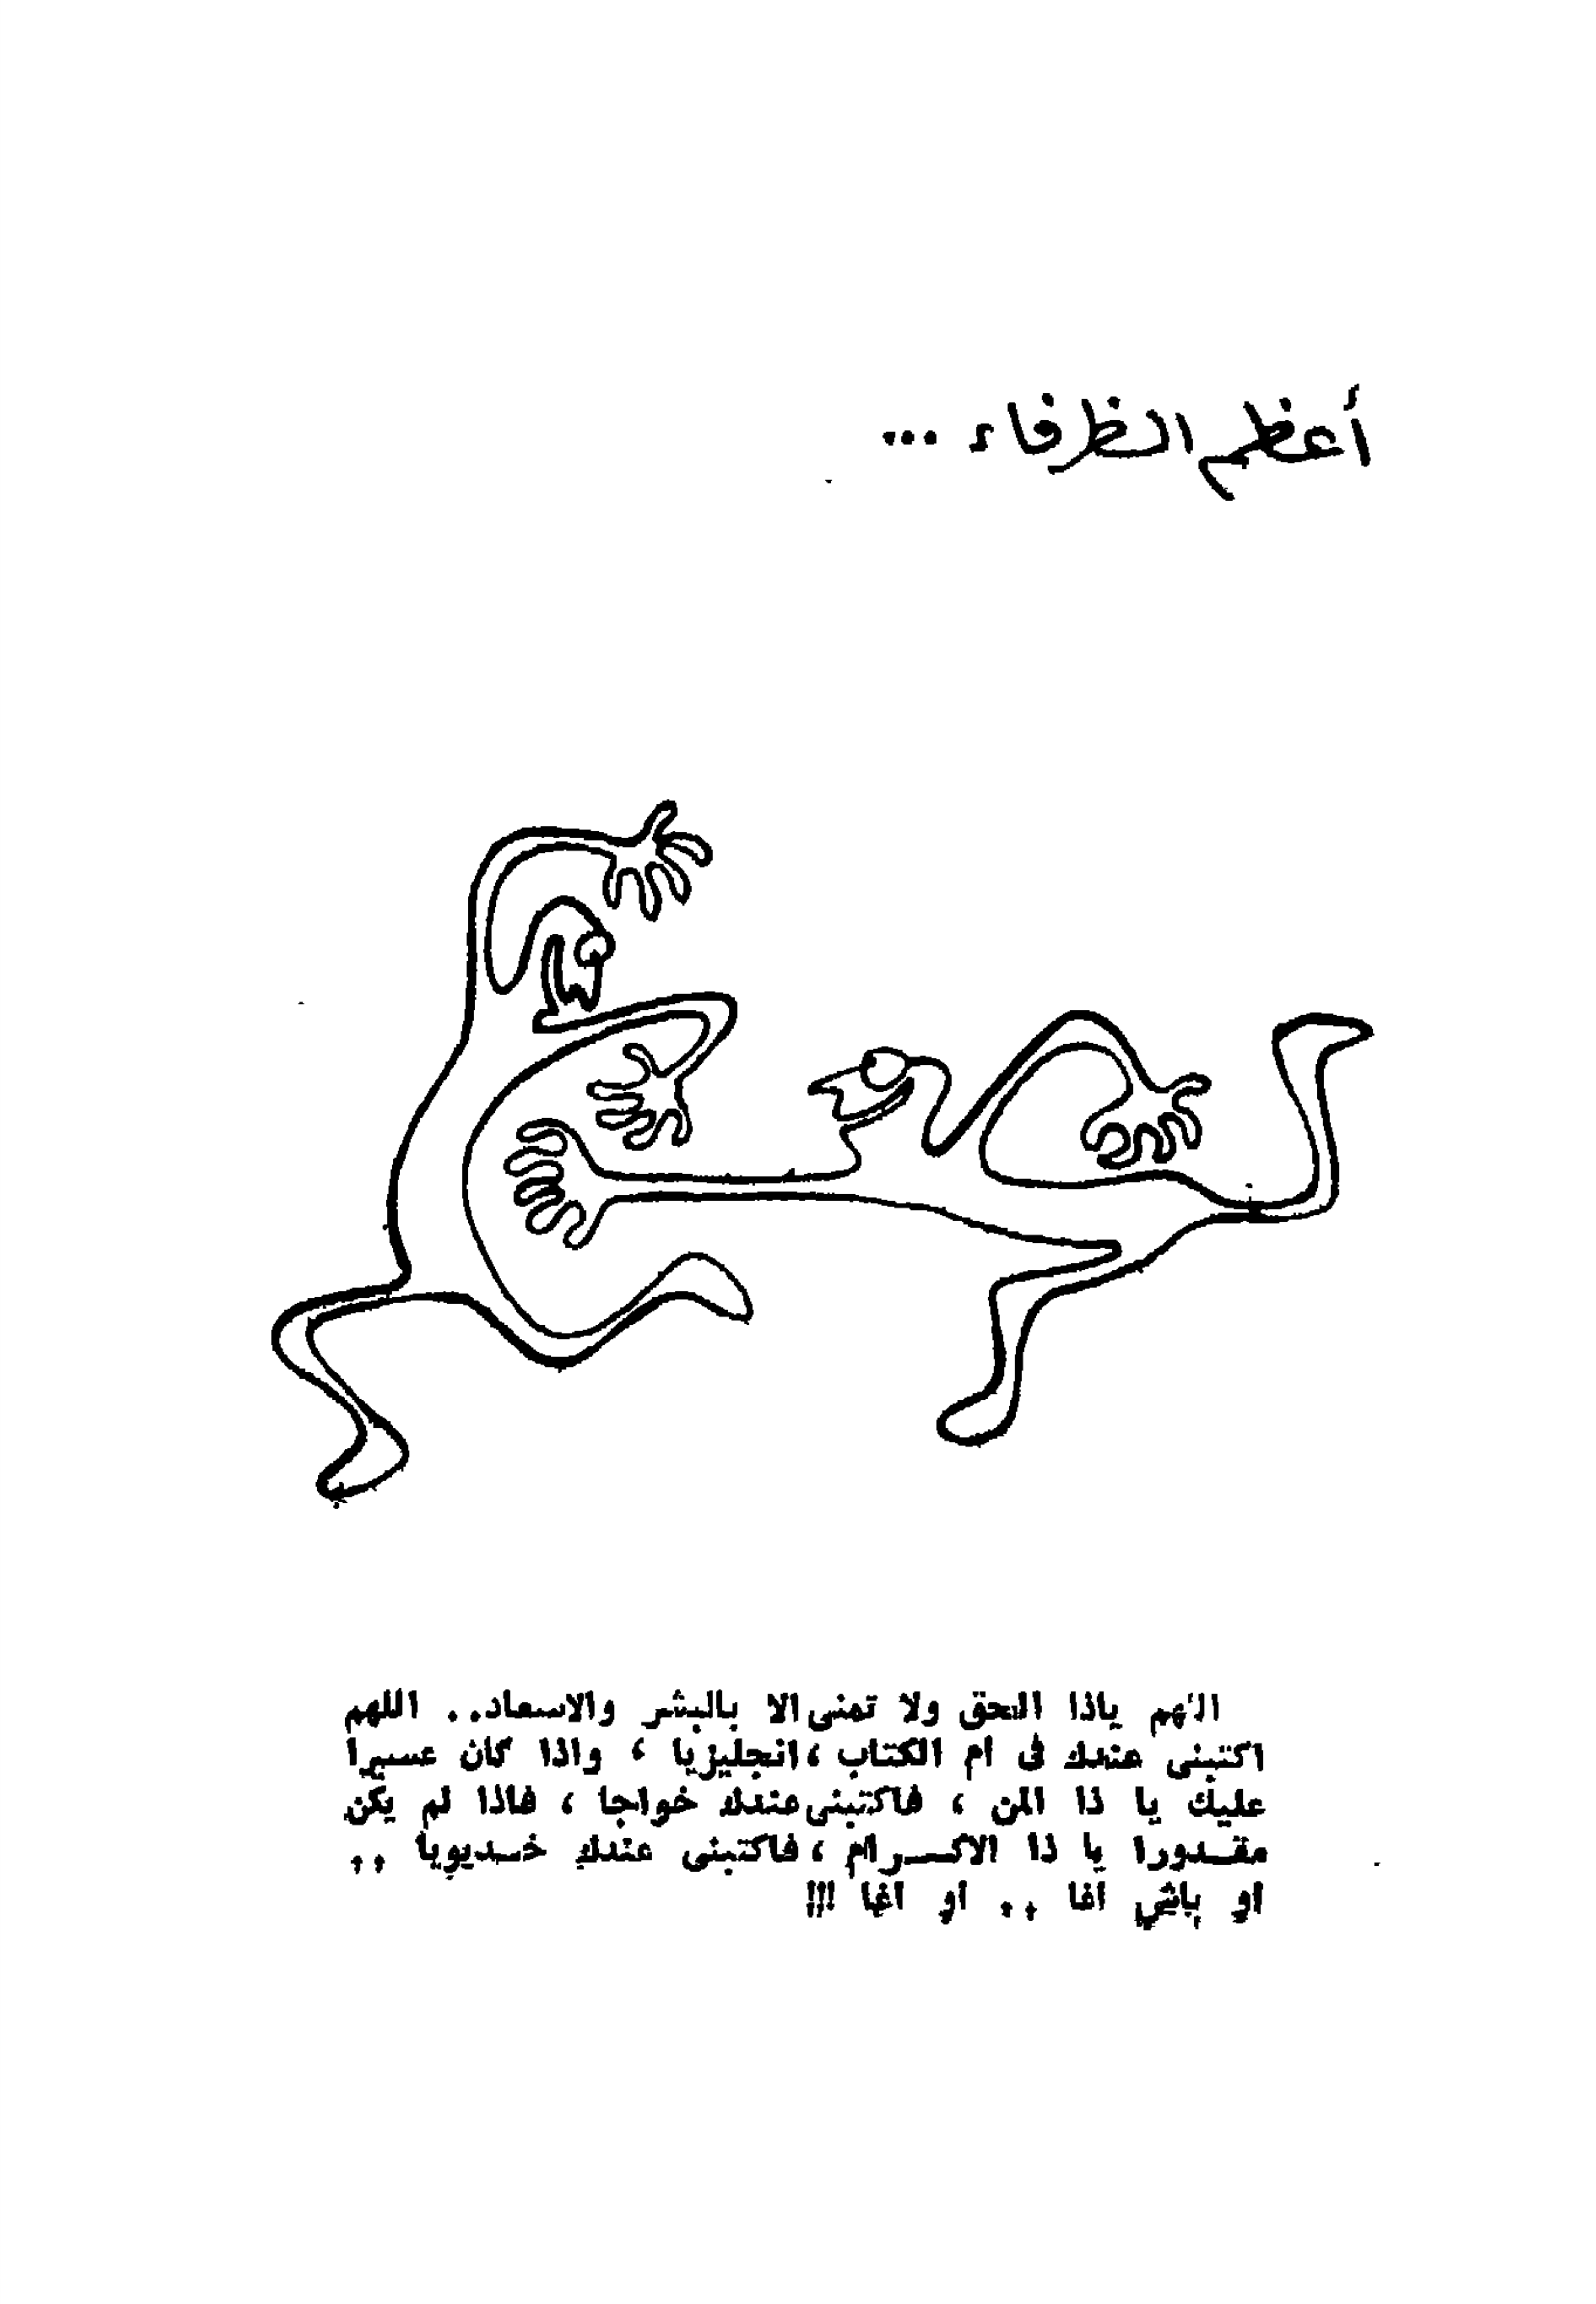 أعظم الظرفاء ...
اللهم ياذا الحق ولا تمنى الا بالبشر والاسعاد.. اللهم
اكتبنى عندك فى ام الكتاب ، انجليزيا ، واذا كان عسيرا
عليك يا ذا المن ، فاكتبنى عندك خواجا ، فاذا لم يكن
مقدورا يا ذا الاكرام ، فاكتبنى عندك خديويا ..
او باشي آغا .. او آغا !!!